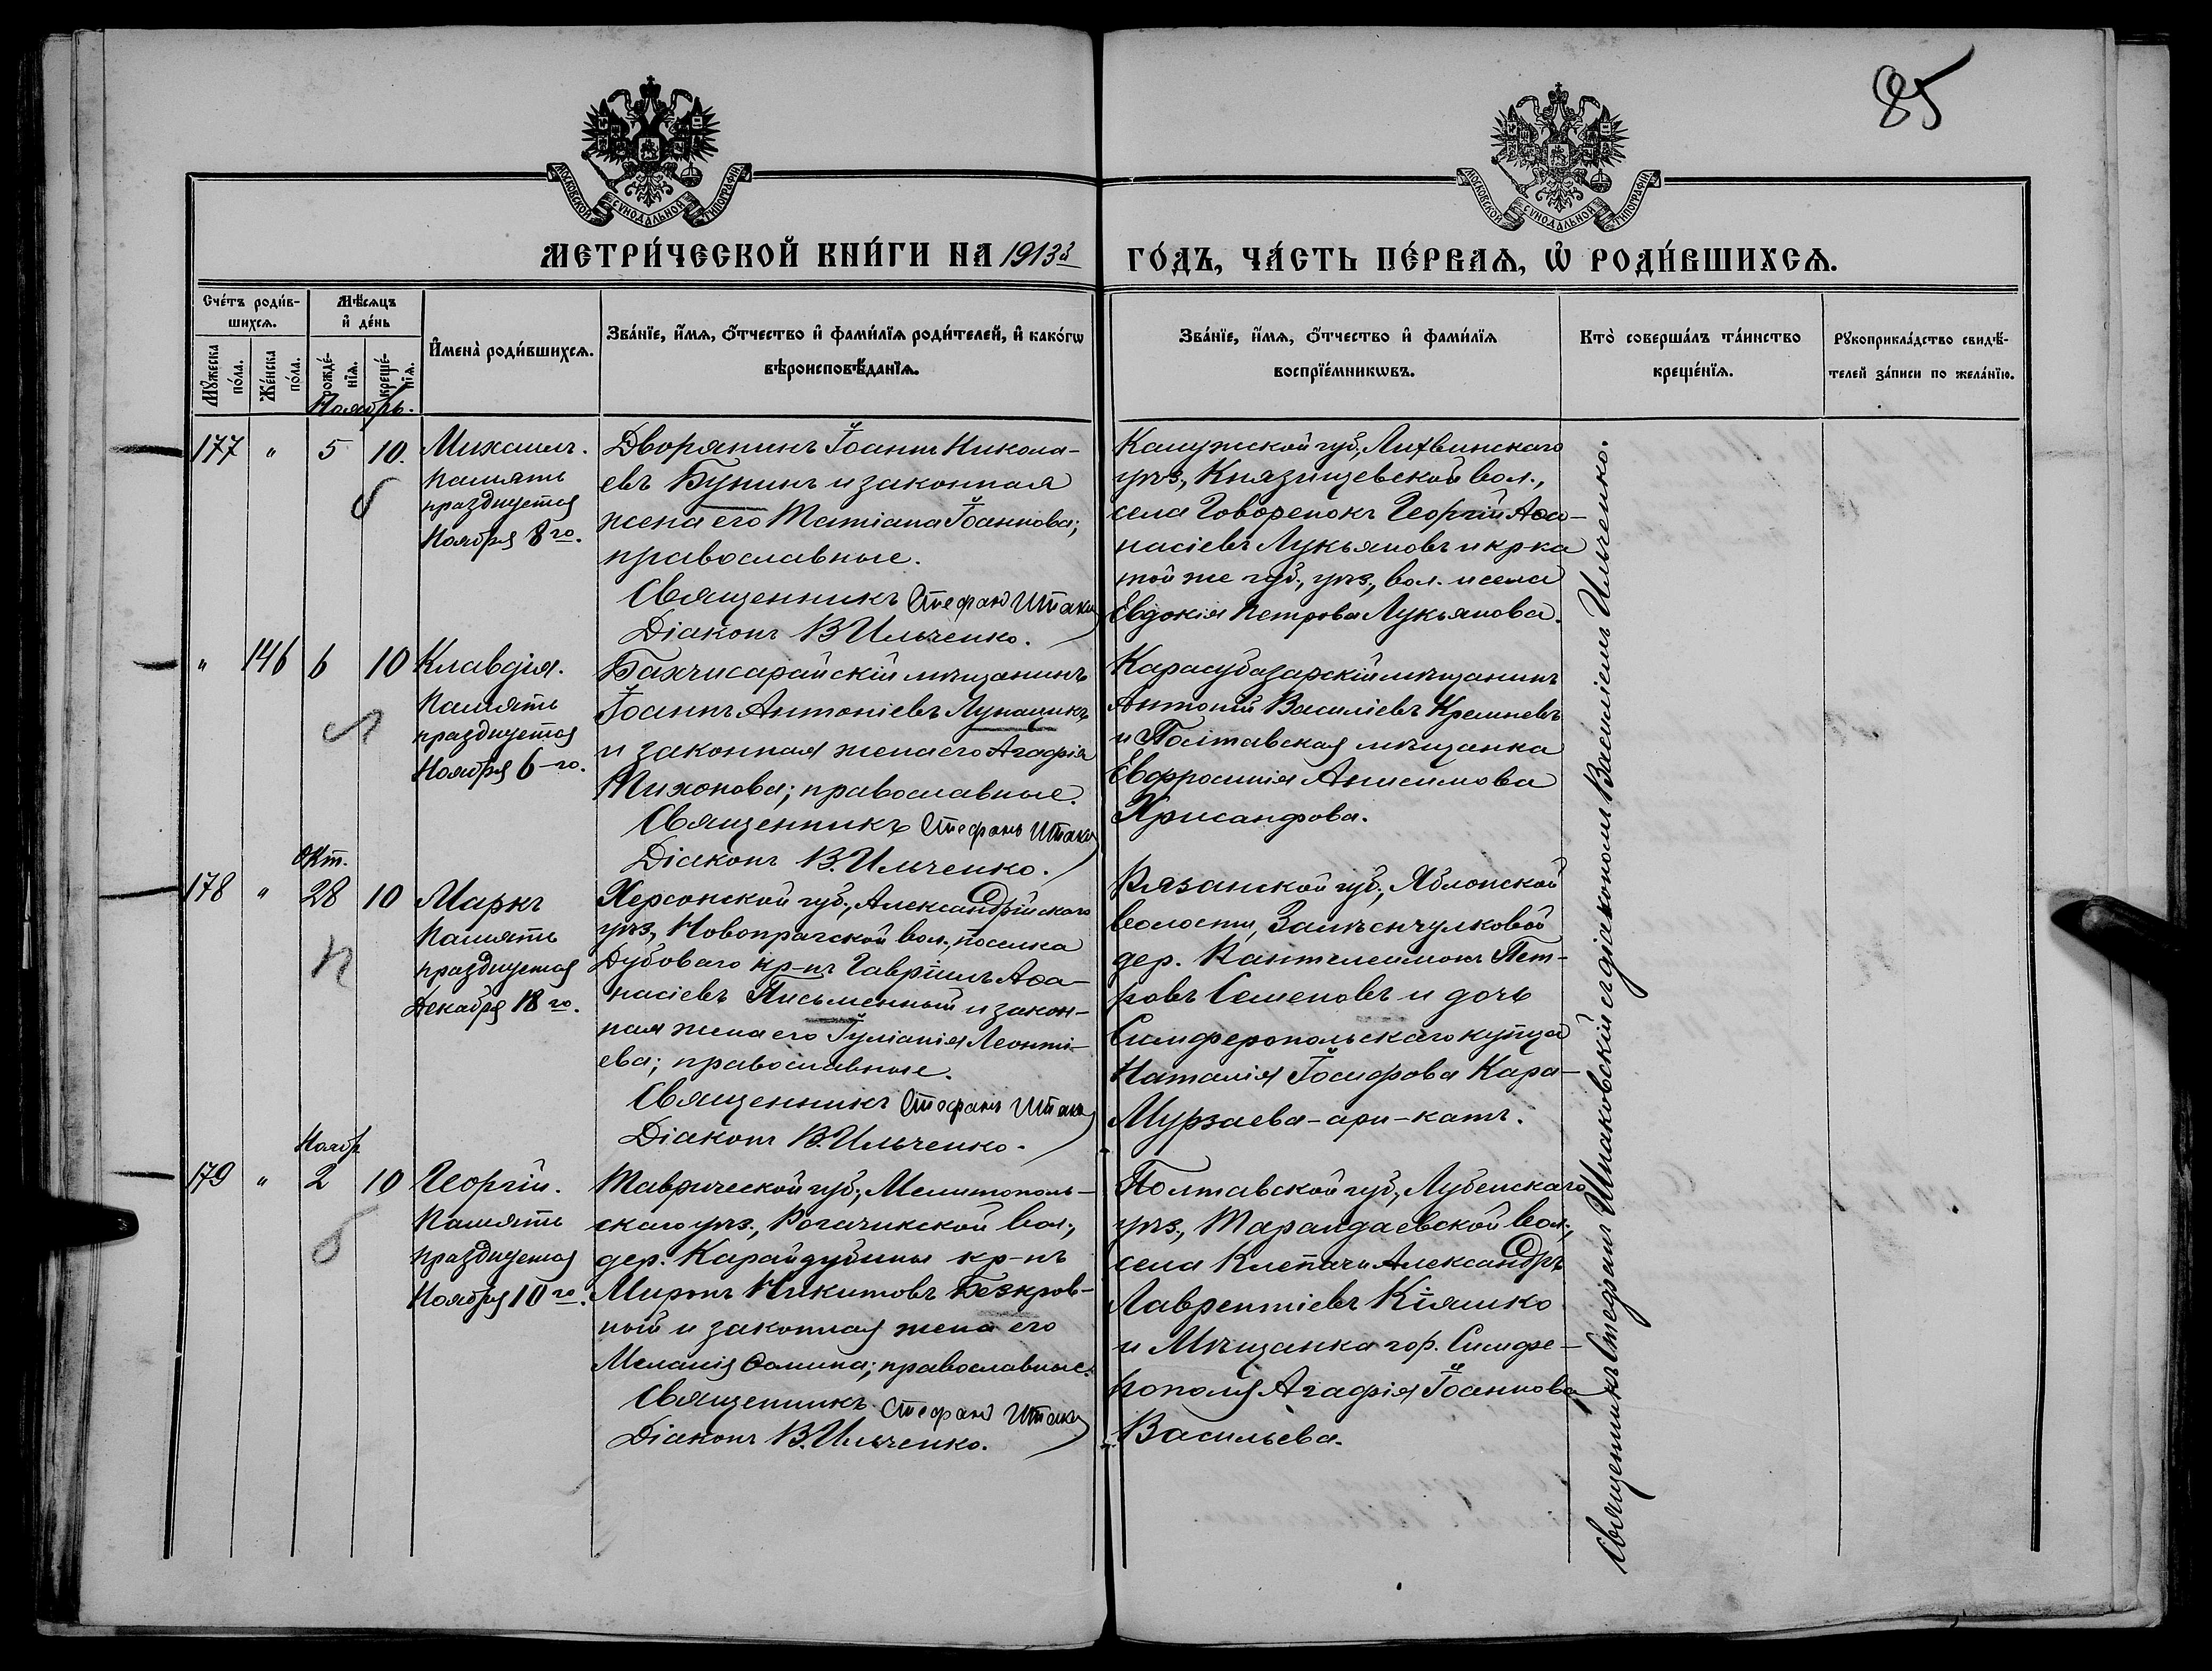 85
МОСКОВСКОЙ СѴНОДАЛЬНОЙ ТИПОГРАФІИ
МОСКОВСКОЙ СѴНОДАЛЬНОЙ ТИПОГРАФІИ
МЕТРИ́ЧЕСКОЙ КНИ́ГИ НА 1913й
ГО́ДЪ, ЧА́СТЬ ПЕ́РВАѦ, Ѡ҆ РОДИ́ВШИХСѦ.
Сче́тъ роди́в-
шихсѧ.
Мѣ́сѧцъ
и҆ де́нь
Мꙋ́жеска
по́ла.
Же́нска
по́ла.
рожде́-
нїѧ.
креще́-
нїѧ.
И҆мена̀ роди́вшихсѧ.
Зва́нїе, и҆́мѧ, ѻ҆́тчество и҆ фами́лїѧ роди́телей, и҆ како́гѡ
вѣроисповѣ́данїѧ.
Зва́нїе, и҆́мѧ, ѻ҆́тчество и҆ фами́лїѧ
воспрїе́мникѡвъ.
Кто̀ соверша́лъ та́инство
креще́нїѧ.
Рꙋкоприкла́дство свидѣ́-
телей за́писи по жела́нїю.
Ноябрь.
177 " 5 10.
Михаилъ.
Память
празднуется
Ноября 8го.
Дворянинъ Іоаннъ Никола-
евъ Бунинъ и законная
жена его Татіана Іоаннова;
православные.
Священникъ Стефанъ Шпак
Діаконъ В Ильченко.
Калужской губ., Лихвинскаго
уѣз., Князищевской вол.,
села Говоренокъ Георгій Аѳа-
насіевъ Лукьяновъ и кр-ка
той же губ., уѣз., вол. и села
Евдокія Петрова Лукьянова.
" 146 6 10
Клавдія.
Память
празднуется
Ноября 6-го.
Бахчисарайскій мѣщанинъ
Іоаннъ Антоніевъ Лунащикъ
и законная жена его Агафія
Тихонова; православные.
Священникъ Стефанъ Шпак
Діаконъ В. Ильченко.
Карасубазарскій мѣщанинъ
Антоній Василіевъ Кремневъ
и Полтавская мѣщанка
Евфросинія Анисимова
Хрисанфова.
Окт.
178 " 28 10
п
Маркъ
Память
празднуется
Декабря 18го.
Херсонской губ., Александрійскаго
уѣз., Новопражской вол., поселка
Дубоваго кр-нъ Гавріилъ Аѳа-
насіевъ Письменный и закон-
ная жена его Іуліанія Леонті-
ева; православные.
Священникъ Стефанъ Шпак
Діаконъ В. Ильченко.
Рязанской губ., Яблонской
волости,
дер. Пантелеимонъ Пет-
ровъ Семеновъ и дочь
Симферопольскаго купца
Наталія Іосифова Кара-
Мурзаева-ари-катъ.
Ноябр
179 " 2 10
б
Георгій.
Память
празднуется
Ноября 10го.
Таврической губ., Мелитополь-
скаго уѣз., Рогачикской вол.,
дер. Карайдубины кр-нъ
Миронъ Никитовъ Безкров-
ный и законная жена его
Меланія Ѳомина; православные.
Священникъ Стефанъ Шпак
Діаконъ В. Ильченко.
Полтавской губ., Лубенскаго
уѣз., Тарандаевской вол.,
села Клепачи Александръ
Лаврентіевъ Кіяшко
и Мѣщанка гор. Симфе-
рополя Агафія Іоаннова
Васильева.
Священникъ Стефанъ Шпаковскій съ діакономъ Василіемъ Ильченко.